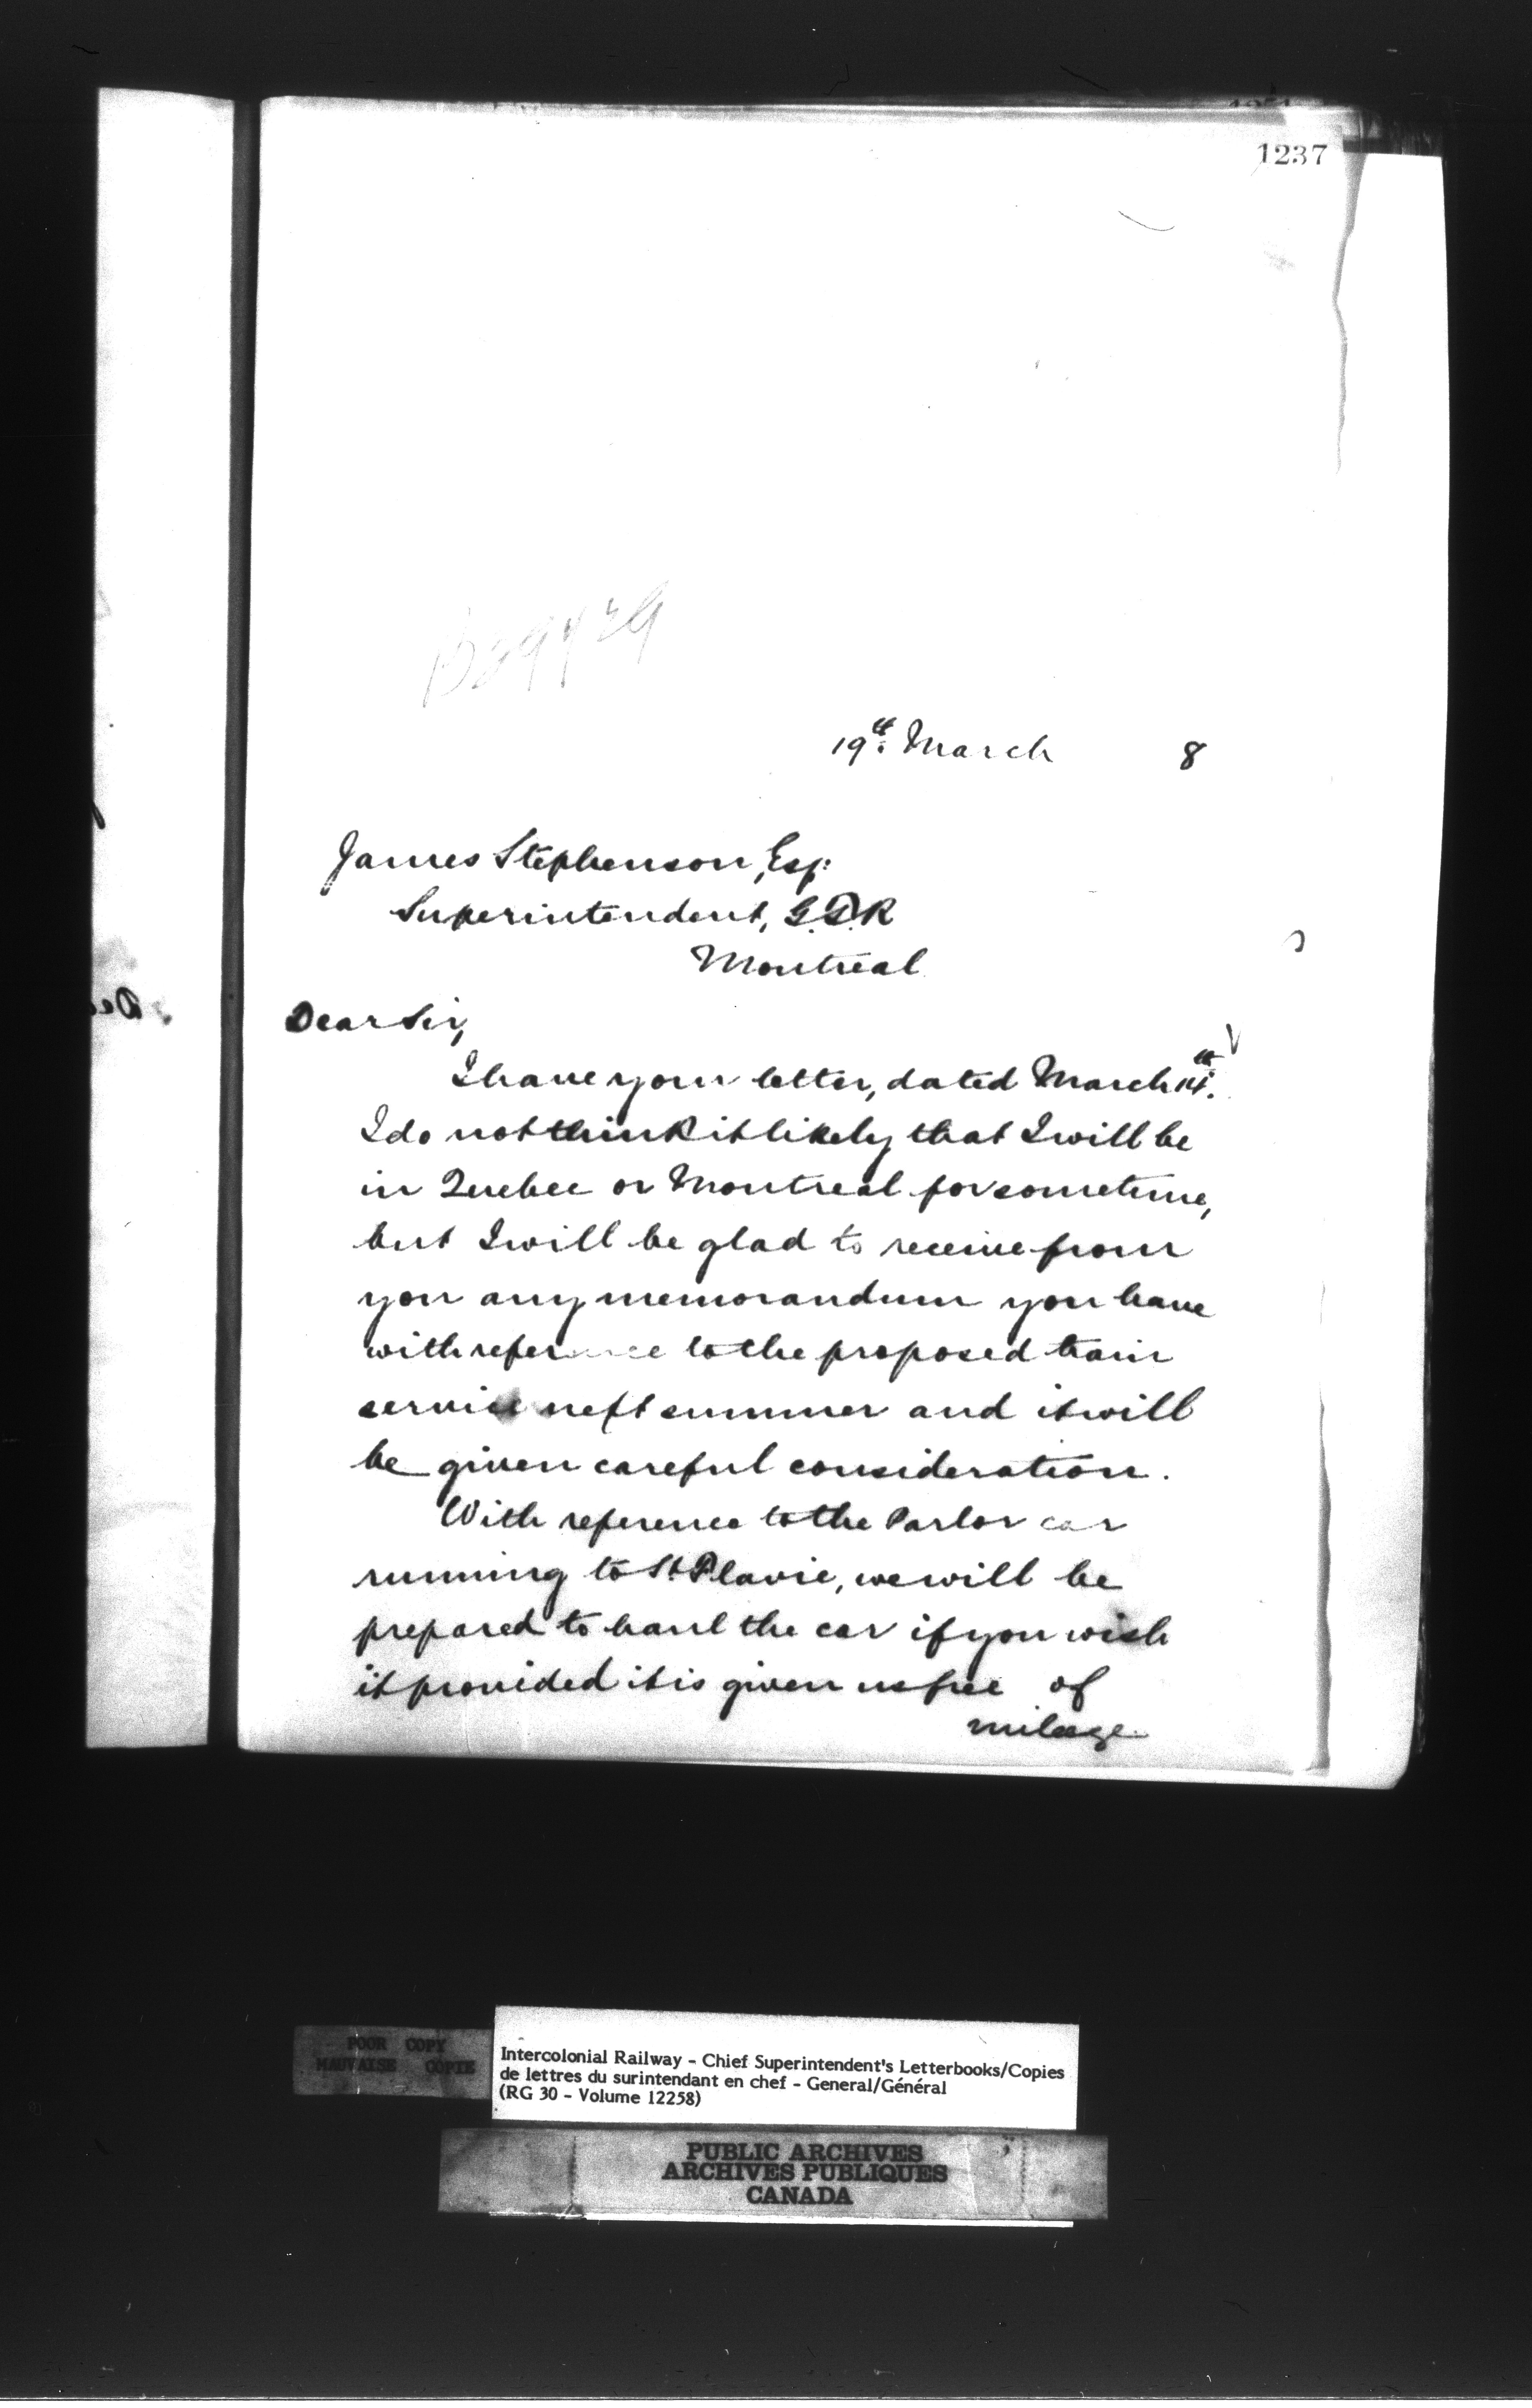 1237
19th March 8
James Stephenson, Esq:
Superintendent, G.T.R
Montreal
Dear Sir,
I have your letter, dated March 14th.
I do not think it likely that I will be
in Quebec or Montreal for sometime,
but I will be glad to receive from
you any memorandum you have
with reference to the proposed train
service next summer and it will
be given careful consideration.
With reference to the Parlor car
running to St. Flavie, we will be
prepared to haul the car if you wish
it provided it is given us free of
milage
POOR COPY
MAUVAISE COPIE
Intercolonial Railway - Chief Superintendent's Letterbooks/Copies
de lettres du surintendant en chef - General/Général
(RG 30 - Volume 12258)
PUBLIC ARCHIVES
ARCHIVES PUBLIQUES
CANADA